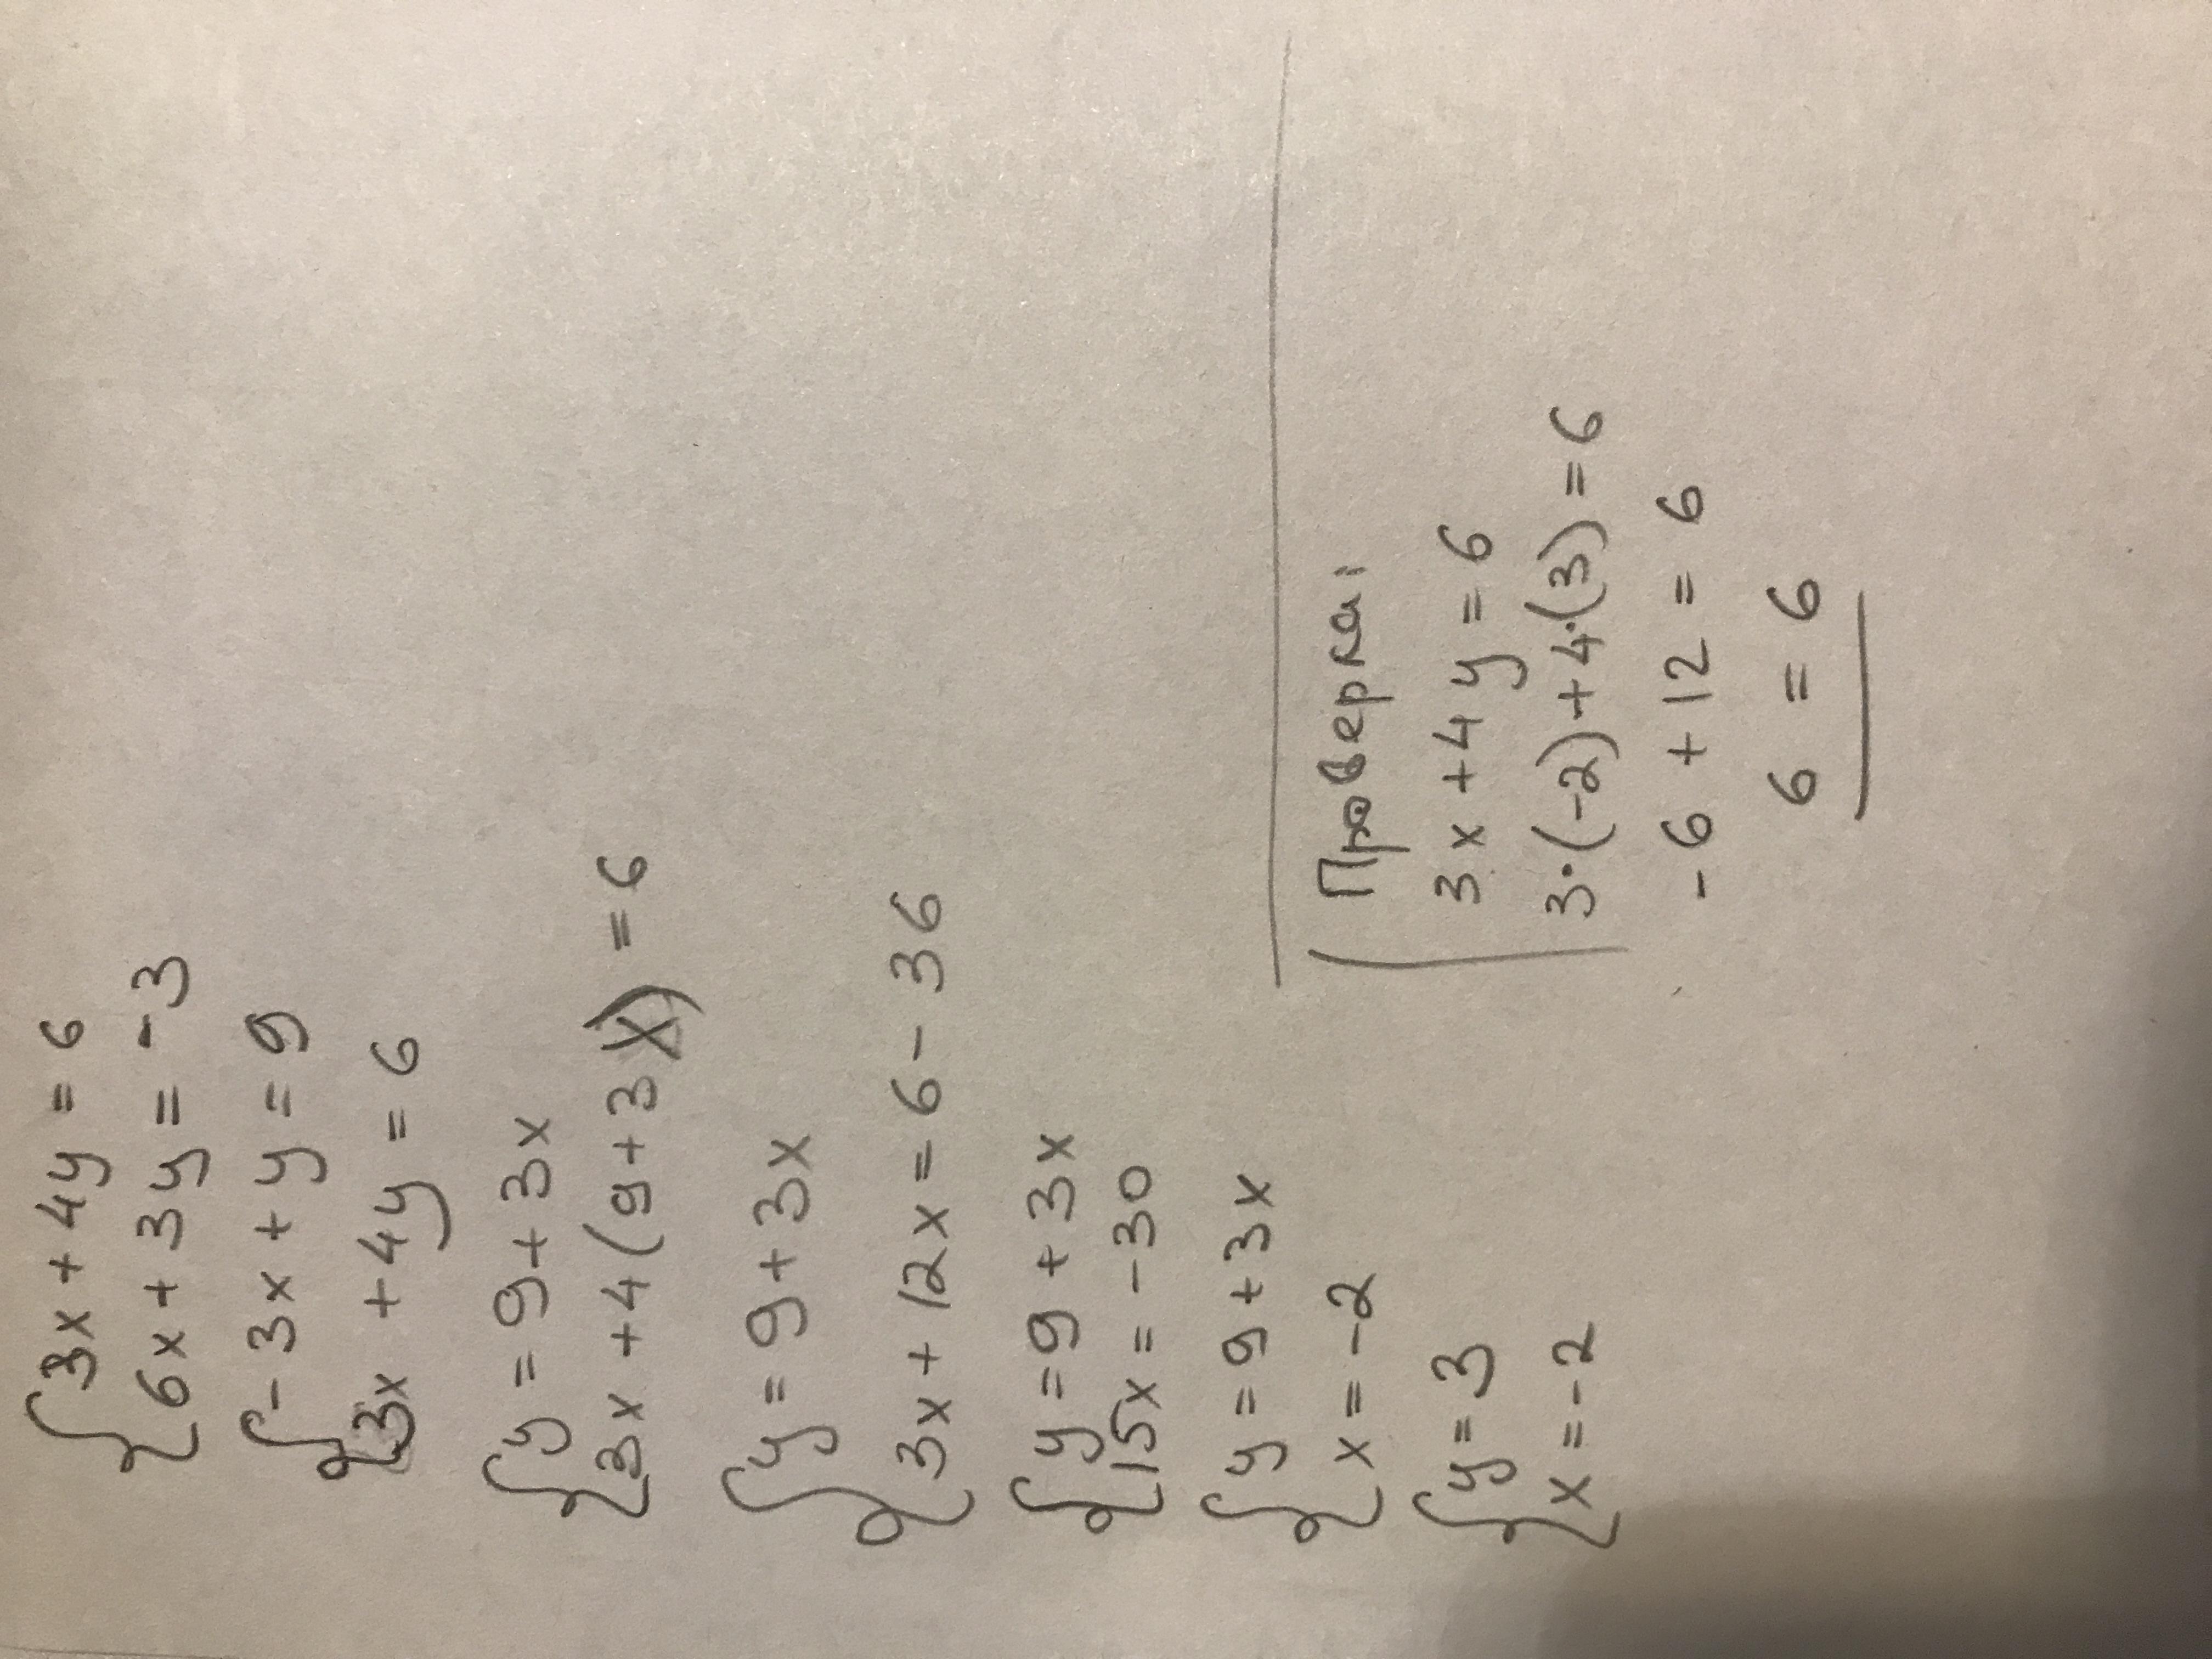 { 3x + 4y = 6
6x + 3y = -3
{ -3x + y = 9
3x + 4y = 6
{ y = 9 + 3x
3x + 4(9 + 3x) = 6
{ y = 9 + 3x
3x + 12x = 6 - 36
{ y = 9 + 3x
15x = -30
{ y = 9 + 3x
x = -2
{ y = 3
x = -2
Проверка:
3x + 4y = 6
3·(-2) + 4·(3) = 6
-6 + 12 = 6
6 = 6